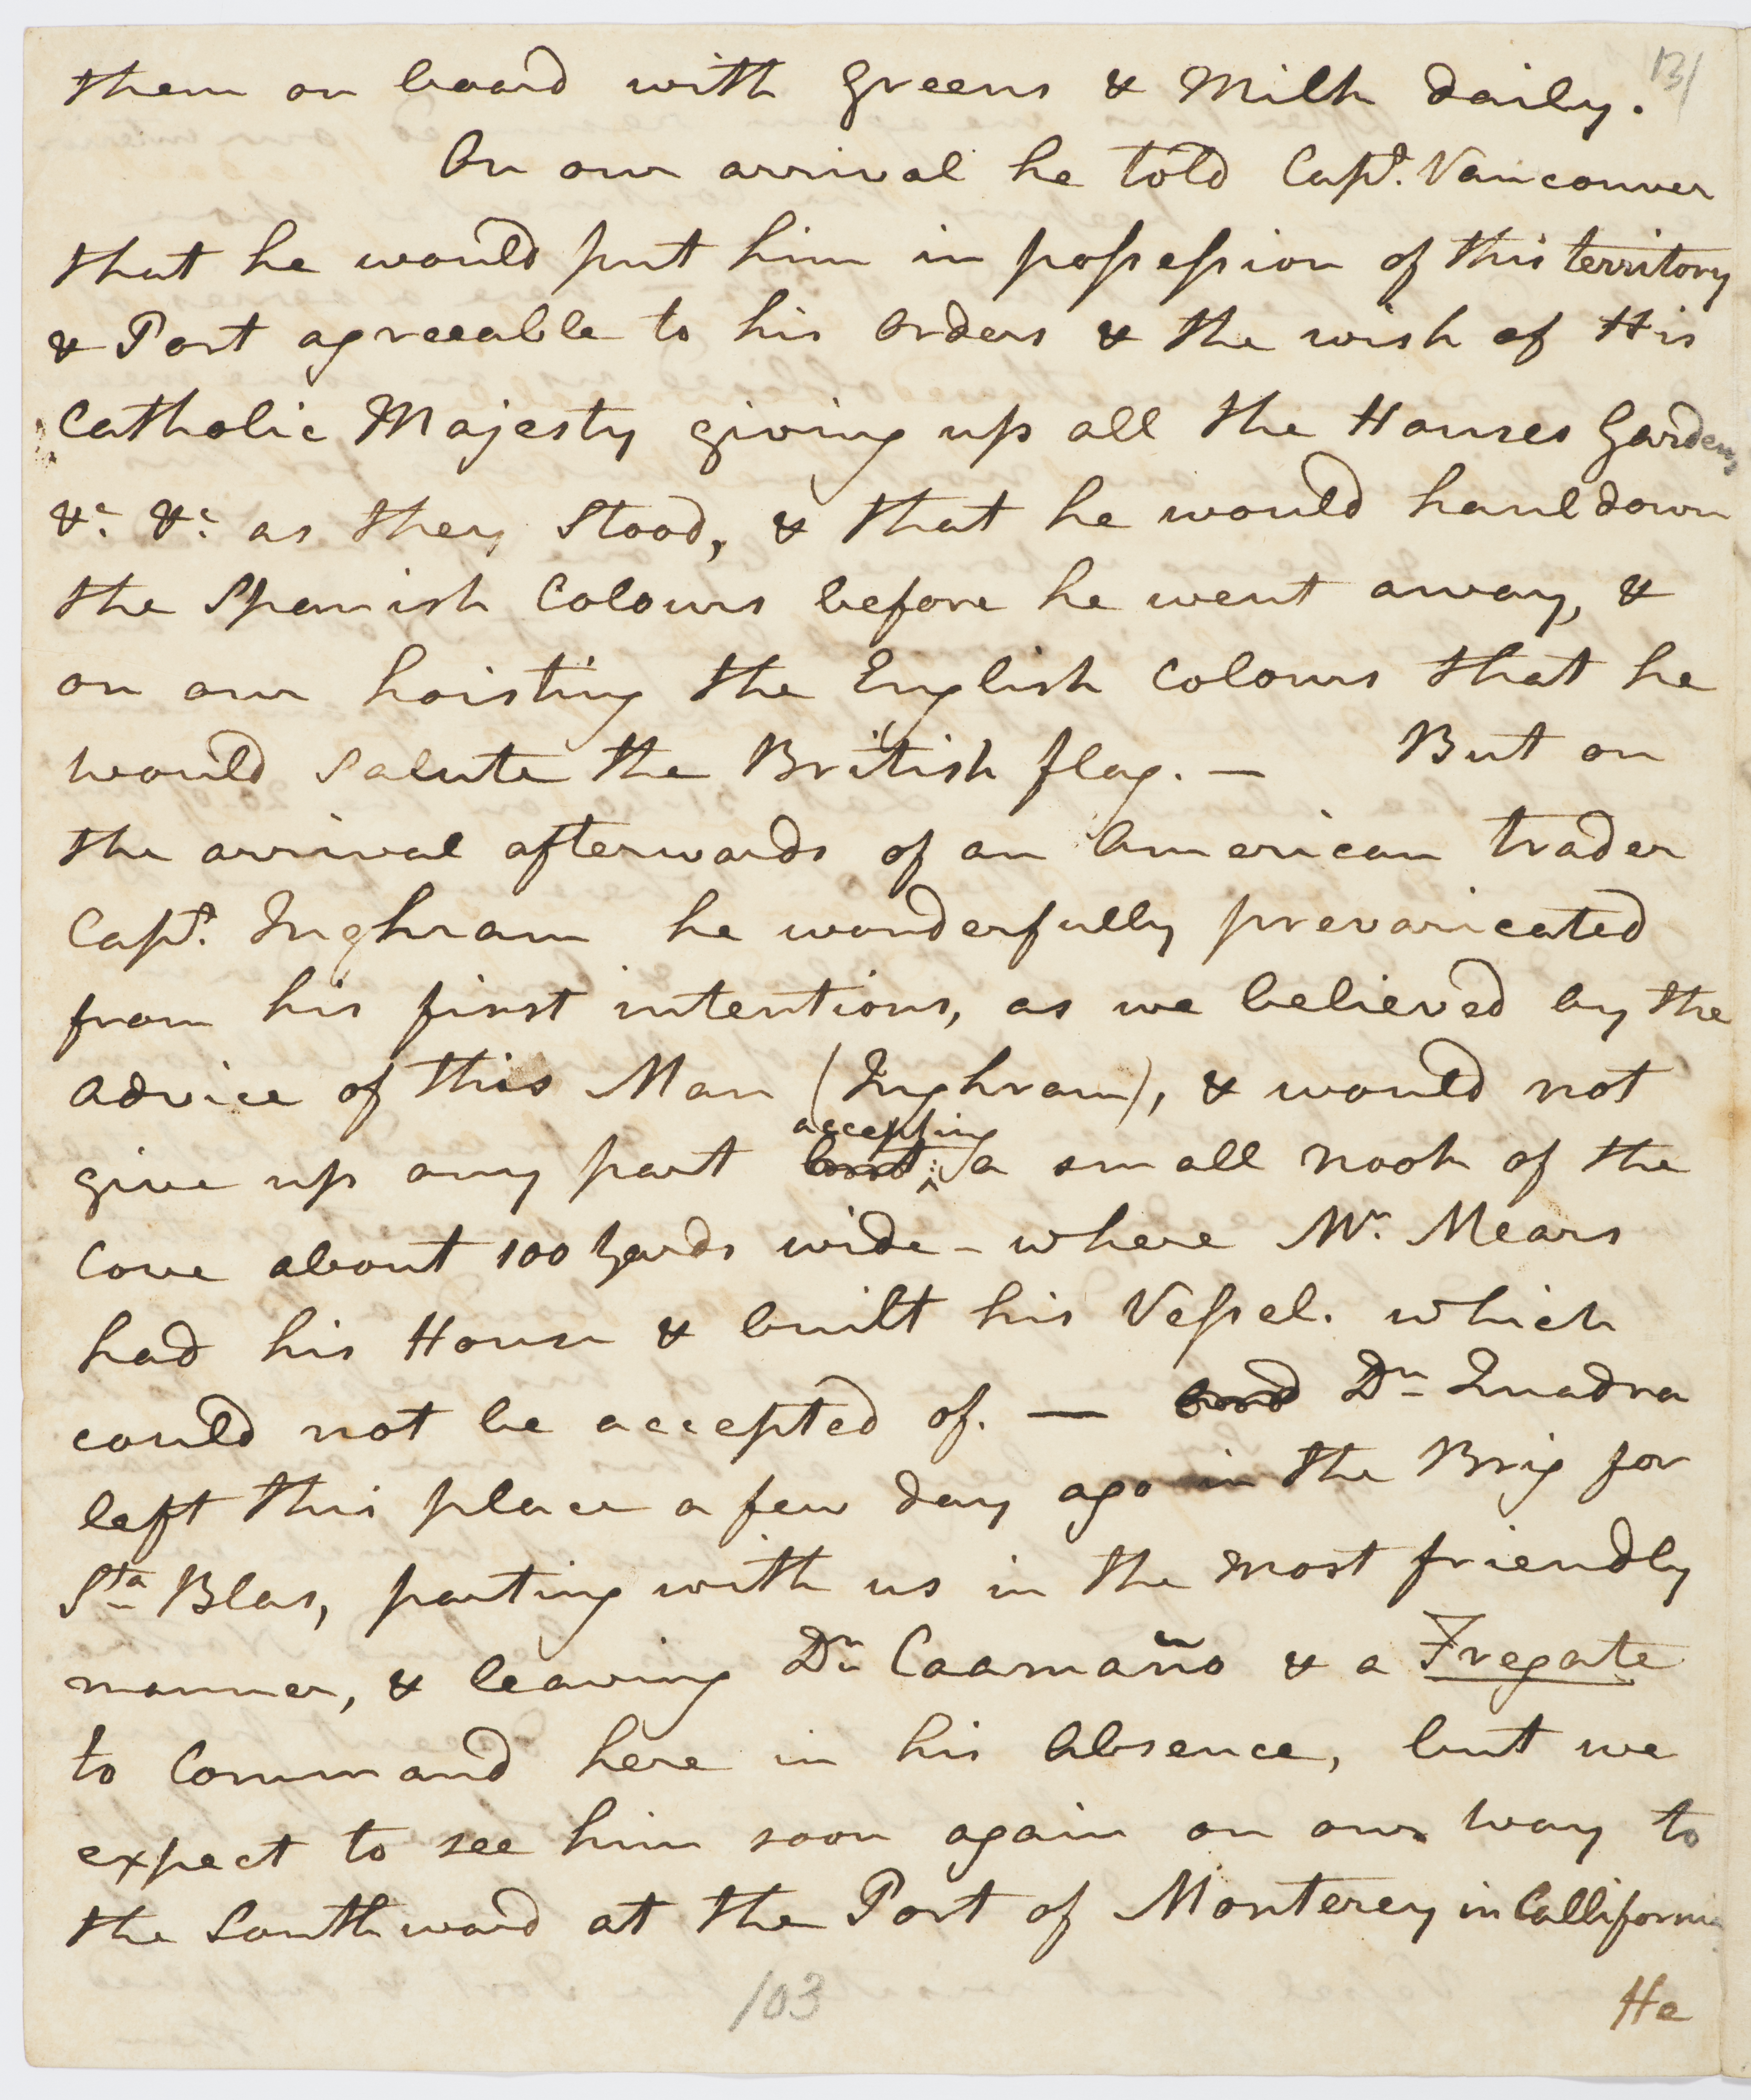 131
them on board with Greens & Milk daily.
On our arrival he told Capt. Vancouver
that he would put him in possession of this territory
& Port agreeable to his Orders & the wish of His
Catholic Majesty giving up all the Houses Gardens
&c. &c. as they Stood, & that he would haul down
the Spanish Colours before he went away, &
on our hoisting the English Colours that he
would Salute the British flag. — But on
the arrival afterwards of an American trader
Capt. Inghram he wonderfully prevaricated
from his first intentions, as we believed by the
advice of this Man (Inghram), & would not
accepting
give up any part but a small nook of the
Cove about 100 Yards wide - where Mr. Mears
had his House & built his Vessel. which
could not be accepted of. — Dn Quadra
left this place a few day ago in the Brig for
Sta Blas, parting with us in the most friendly
manner, & leaving Dn Caamaño & a Fregate
to Command here in his Absence, but we
expect to see him soon again on our way to
the Southward at the Port of Monterey in Callifornia
103
He